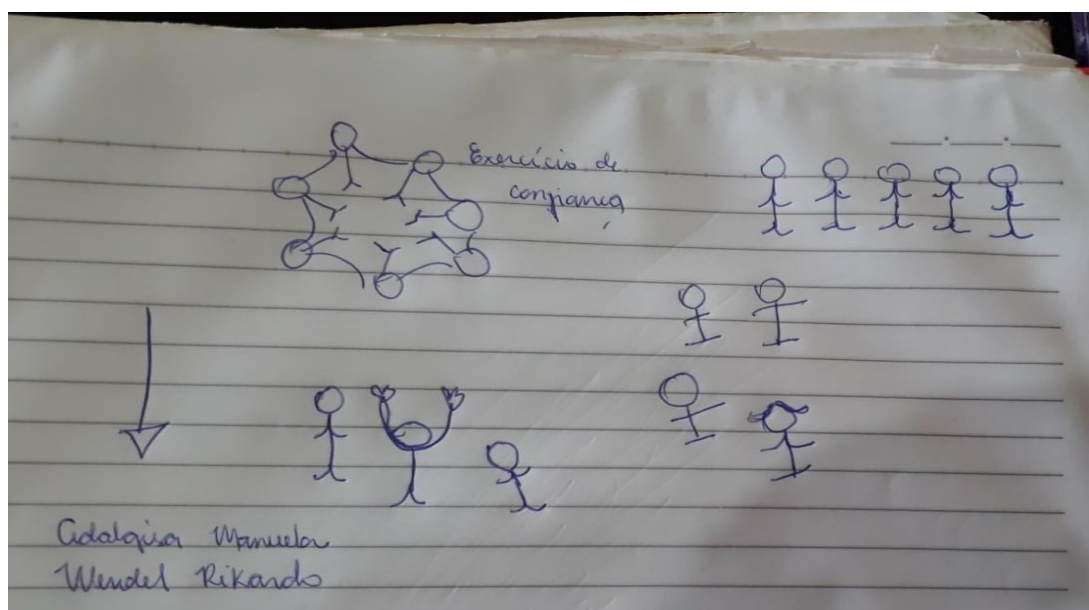 Exercício de
confiança
Adalgisa Manuela
Wendel Rikardo